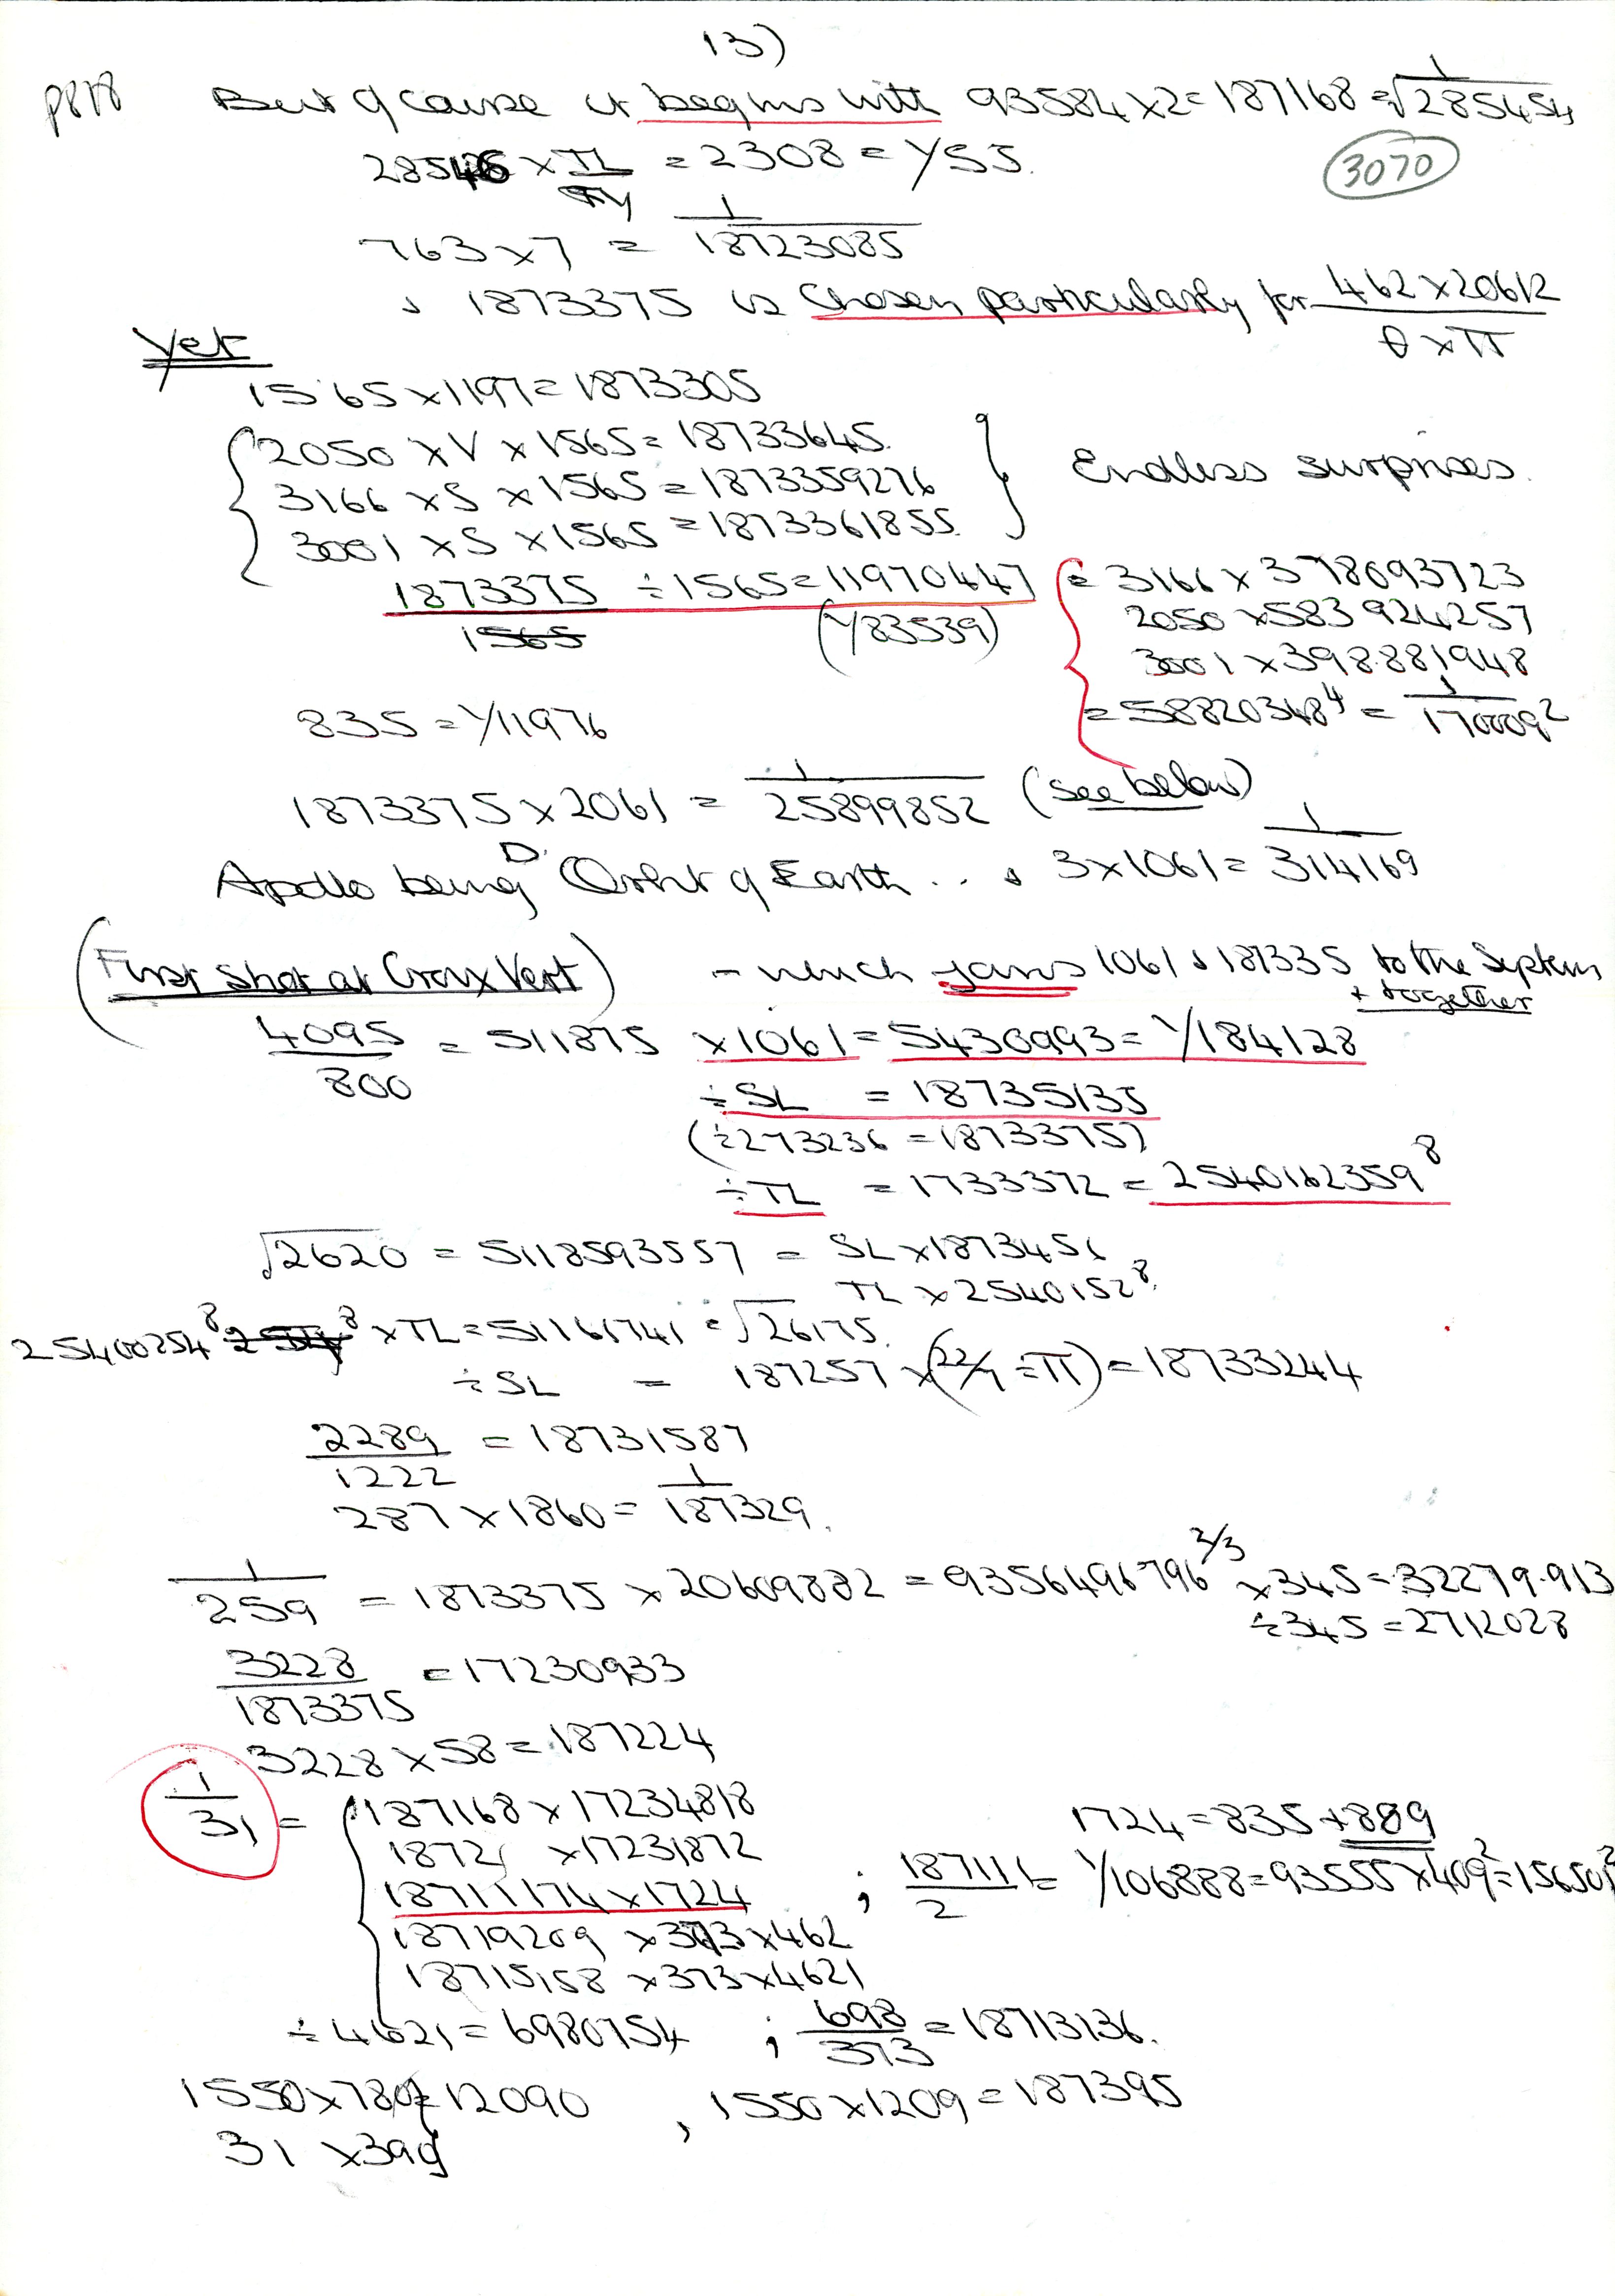 13)
But of cause it begins with 93584 x 2 = 187168 = √1/285454
3070
28546 x TL = 2308 = 1/SS
763 x 7 = 1/18723085
& 1873375 is chosen particularly for 462 x 20612 / θ x π
Yet
1565 x 1197 = 1873305
2050 x V x 1565 = 18733645
3166 x S x 1565 = 1873359276
3001 x S x 1565 = 1873361855
Endless surprises.
1873375 ÷ 1565 = 11970447
(1/83539)
= 3166 x 378093723
2050 x 583924257
3001 x 398.881948
= 58820348⁴ = 1/170009²
835 = 1/11976
1873375 x 2061 = 1/25899852 (see below)
Apollo being D. Orbit of Earth... & 3 x 1061 = 1/314169
(First Shot at Croix Vert) - which joins 1061 & 187335 to the Septem
+ together
4095/800 = 511875 x 1061 = 5430993 = 1/184128
÷ SL = 18735135
(÷ 273236 = 18733757)
÷ TL = 1733372 = 2540162359⁸
√2620 = 5118593557 = SL x 1873456
TL x 2540152⁸
25400254⁸ x TL = 51161741 = √26175
÷ SL = 187257 x (22/7 ÷ π) = 18733244
2289/1222 = 18731587
287 x 1860 = 1/187329.
1/259 = 1873375 x 20609882 = 9356496796^2/3 x 345 = 32279.913
÷ 345 = 2712028
3228/1873375 = 17230933
3228 x 58 = 187224
1/31 = 187168 x 17234818
18721 x 17231872
1724 = 835 + 889
18711174 x 1724 ; 187111/2 = 1/106888 = 93555 x 409² = 156501²
18719209 x 373 x 462
18715158 x 373 x 4621
÷ 4621 = 6980754 ; 698/373 = 18713136.
1550 x 780 = 12090 , 1550 x 1209 = 187395
31 x 390